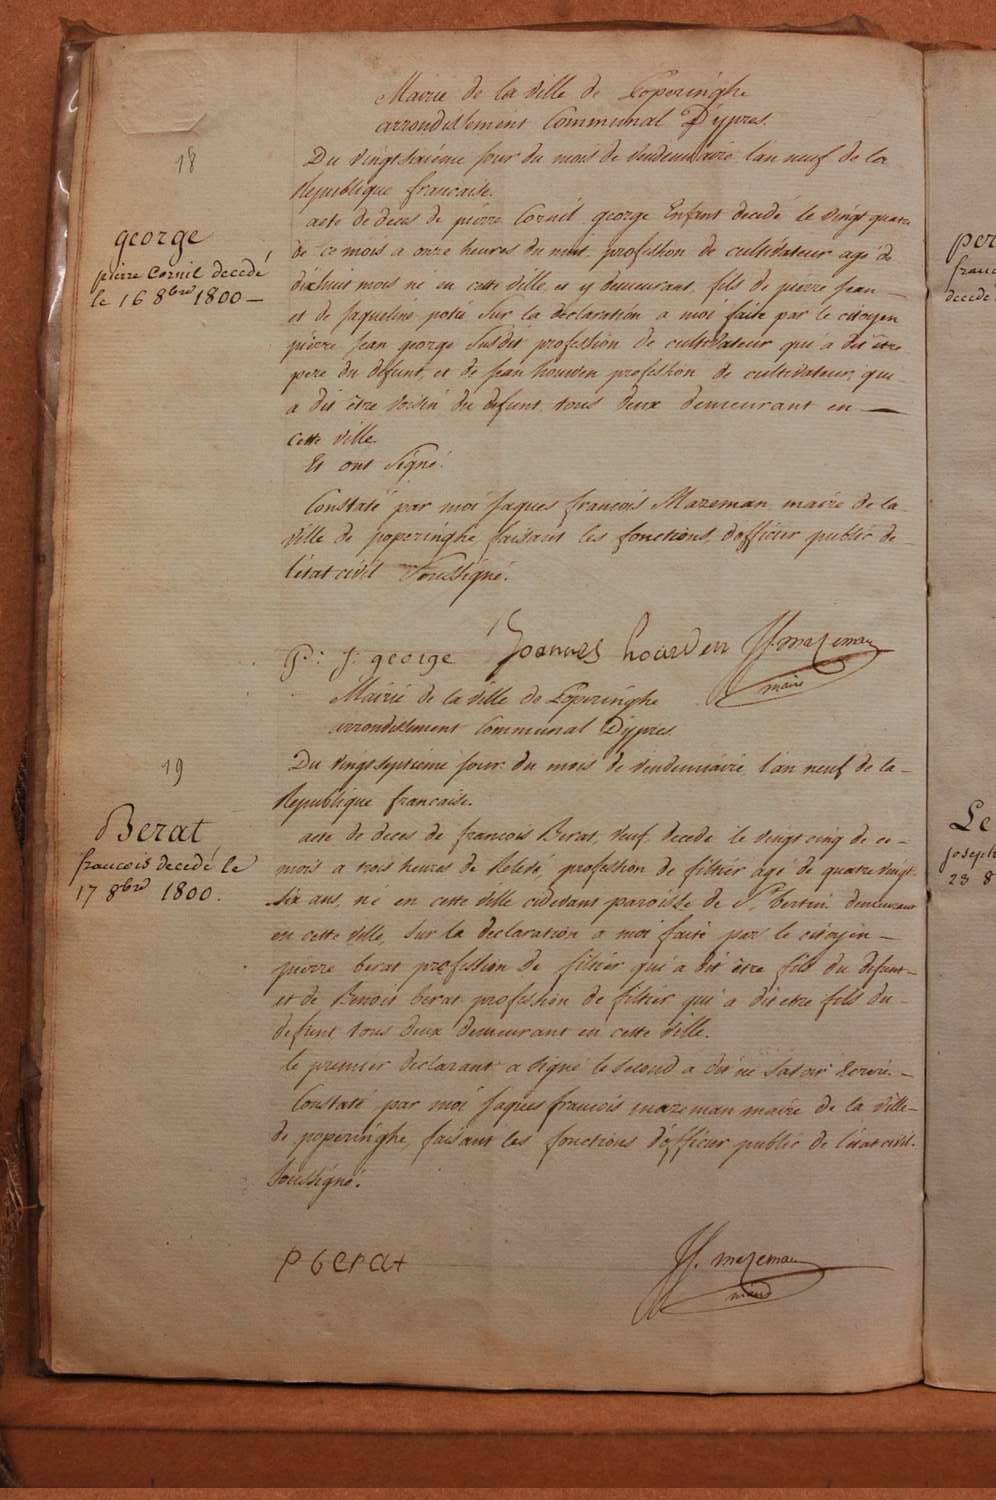 Mairie de la ville de Poperinghe
arrondissement Communal D'ypres.
18
Du vingtsixième jour du mois de vendemiaire l'an neuf de la
Republique française.
george
pierre Cornil decedé
le 16 8bre 1800 —
acte de deces de pierre Cornil george Enfant decedé le vingt quatre
de ce mois a onze heures du nuit, profession de cultivateur agé de
dixhuit mois né en cette ville et y demeurant, fils de pierre jean —
et de jaqueline potié Sur la declaration a moi faite par le citoyen
pierre jean george susdit profession de cultivateur qui a dit être
pere du defunt, et de jean houvden profession de cultivateur, qui
a dit être voisin du defunt tous deux demeurant en —
cette ville.
Et ont signé.
Constaté par moi jaques françois Mazeman maire de la
ville de poperinghe faisant les fonctions d'officier public de-
l'état civil soussigné.
P: j: george Joannes houvden JJ. mazeman
maire
Mairie de la ville de Poperinghe
arrondissement Communal D'ypres
19
Du vingtseptieme jour du mois de vendemiaire l'an neuf de la-
Republique française.
Berat
francois decedé le
17 8bre 1800.
acte de deces de françois Berat, veuf, decede le vingt cinq de ce-
mois a trois heures de relevé, profession de filtier agé de quatrevingt-
six ans, né en cette ville cidevant paroisse de St. bertin demeurant
en cette ville, sur la declaration a moi faite par le citoyen —
pierre berat profession de filtier qui a dit être fils du defunt —
et de Benoit berat profession de filtier qui a dit etre fils du-
defunt, tous deux demeurant en cette ville.
le premier declarant a signé le second a dit ne savoir ecrire. —
Constaté par moi jaques françois mazeman maire de la ville-
de poperinghe, faisant les fonctions d'officier public de l'état civil.
soussigné.
p berat JJ. mazeman
maire
per
franc
decedé
Le
joseph
23 8